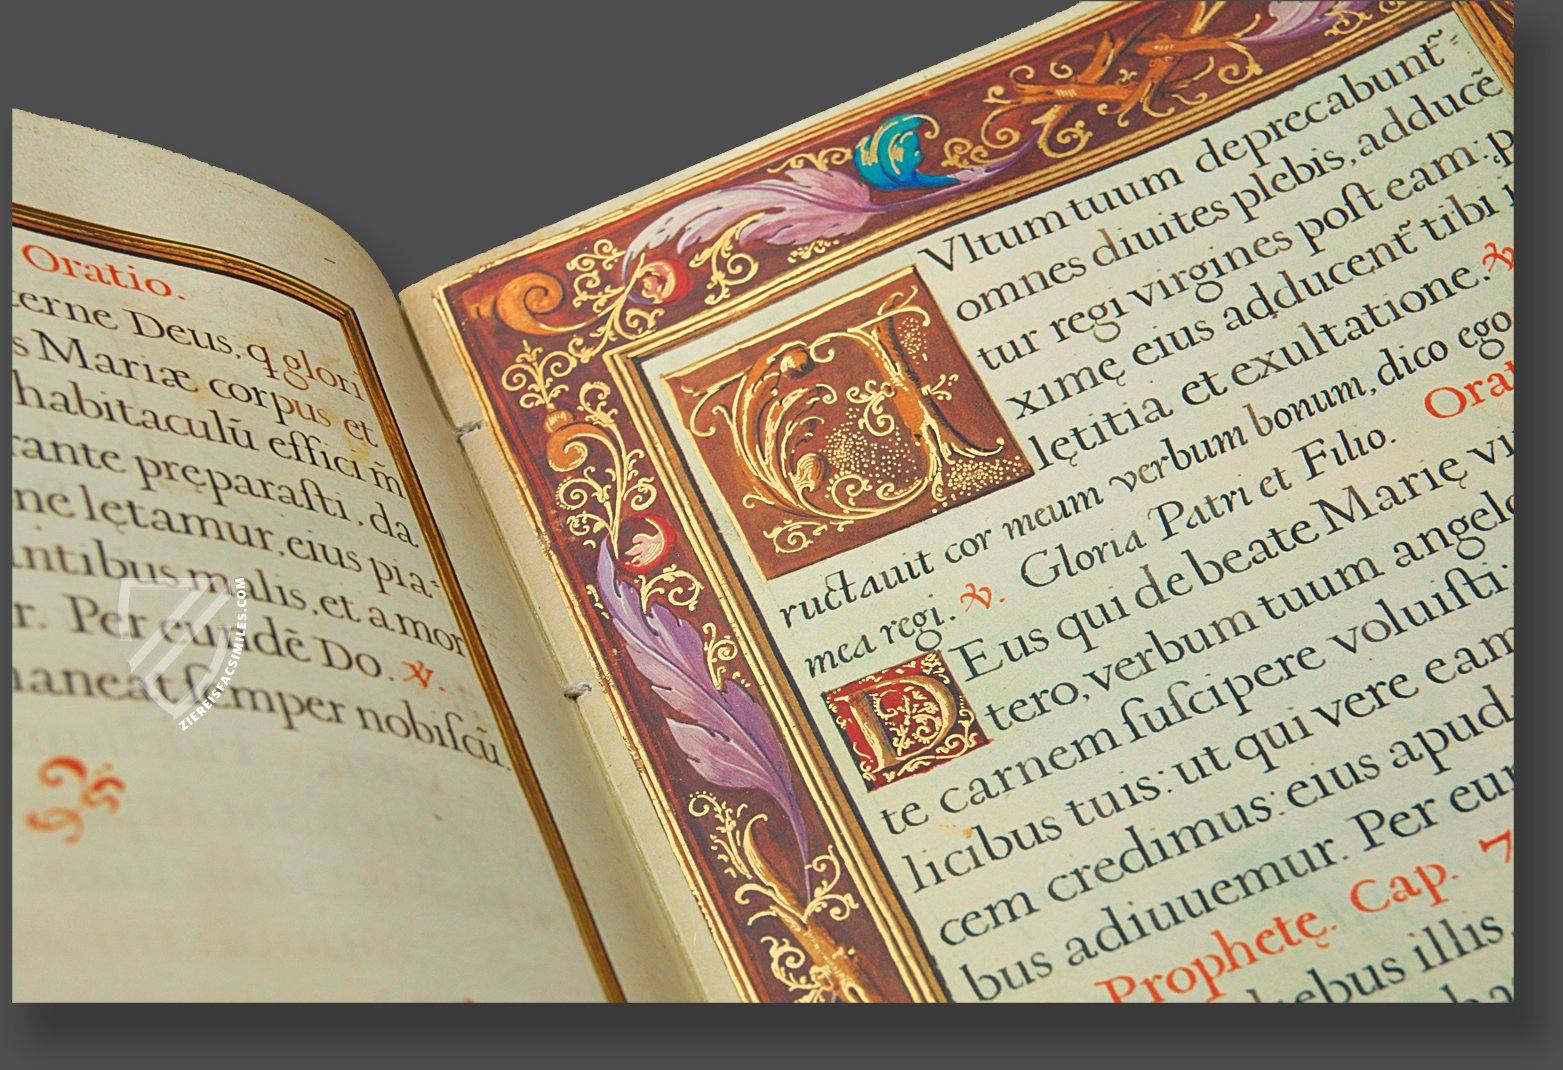 Oratio.
terne Deus, q glori
s Mariæ corpus et
habitaculū effici m̃
rante pręparaſti, da
ne lętamur, eius pia-
antibus malis, et amor
r. Per eundē Do. ꝶ.
maneat ſemper nobiſcū.
ZIEREISFACSIMILES.COM
Vltum tuum deprecabunt̃
omnes diuites plebis, adducē
tur regi virgines poſt eam: p
ximę eius adducent̃ tibi i
lętitia et exultatione. ꝶ
Eructauit cor meum verbum bonum, dico ego
mea regi. ꝶ. Gloria Patri et Filio. Orat
DEus qui de beate Marię vi
tero, verbum tuum angelo
te carnem ſuſcipere voluiſti:
licibus tuis: ut qui vere eam
cem credimus: eius apud
bus adiuuemur. Per eun
Prophetę. Cap. 7
hebus illis,